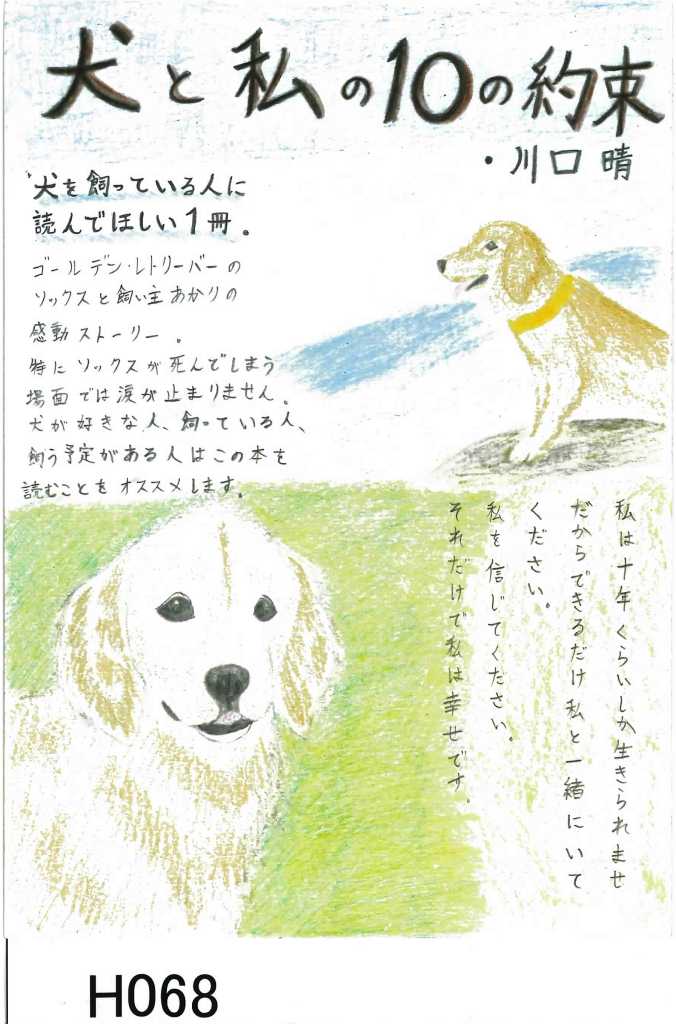 犬と私の10の約束
・川口 晴
犬を飼っている人に
読んでほしい1冊。
ゴールデン・レトリーバーの
ソックスと飼い主あかりの
感動ストーリー。
特にソックスが死んでしまう
場面では涙が止まりません。
犬が好きな人、飼っている人、
飼う予定がある人はこの本を
読むことをオススメします。
私は十年くらいしか生きられませ
だからできるだけ私と一緒にいて
ください。
私を信じてください。
それだけで私は幸せです。
H068